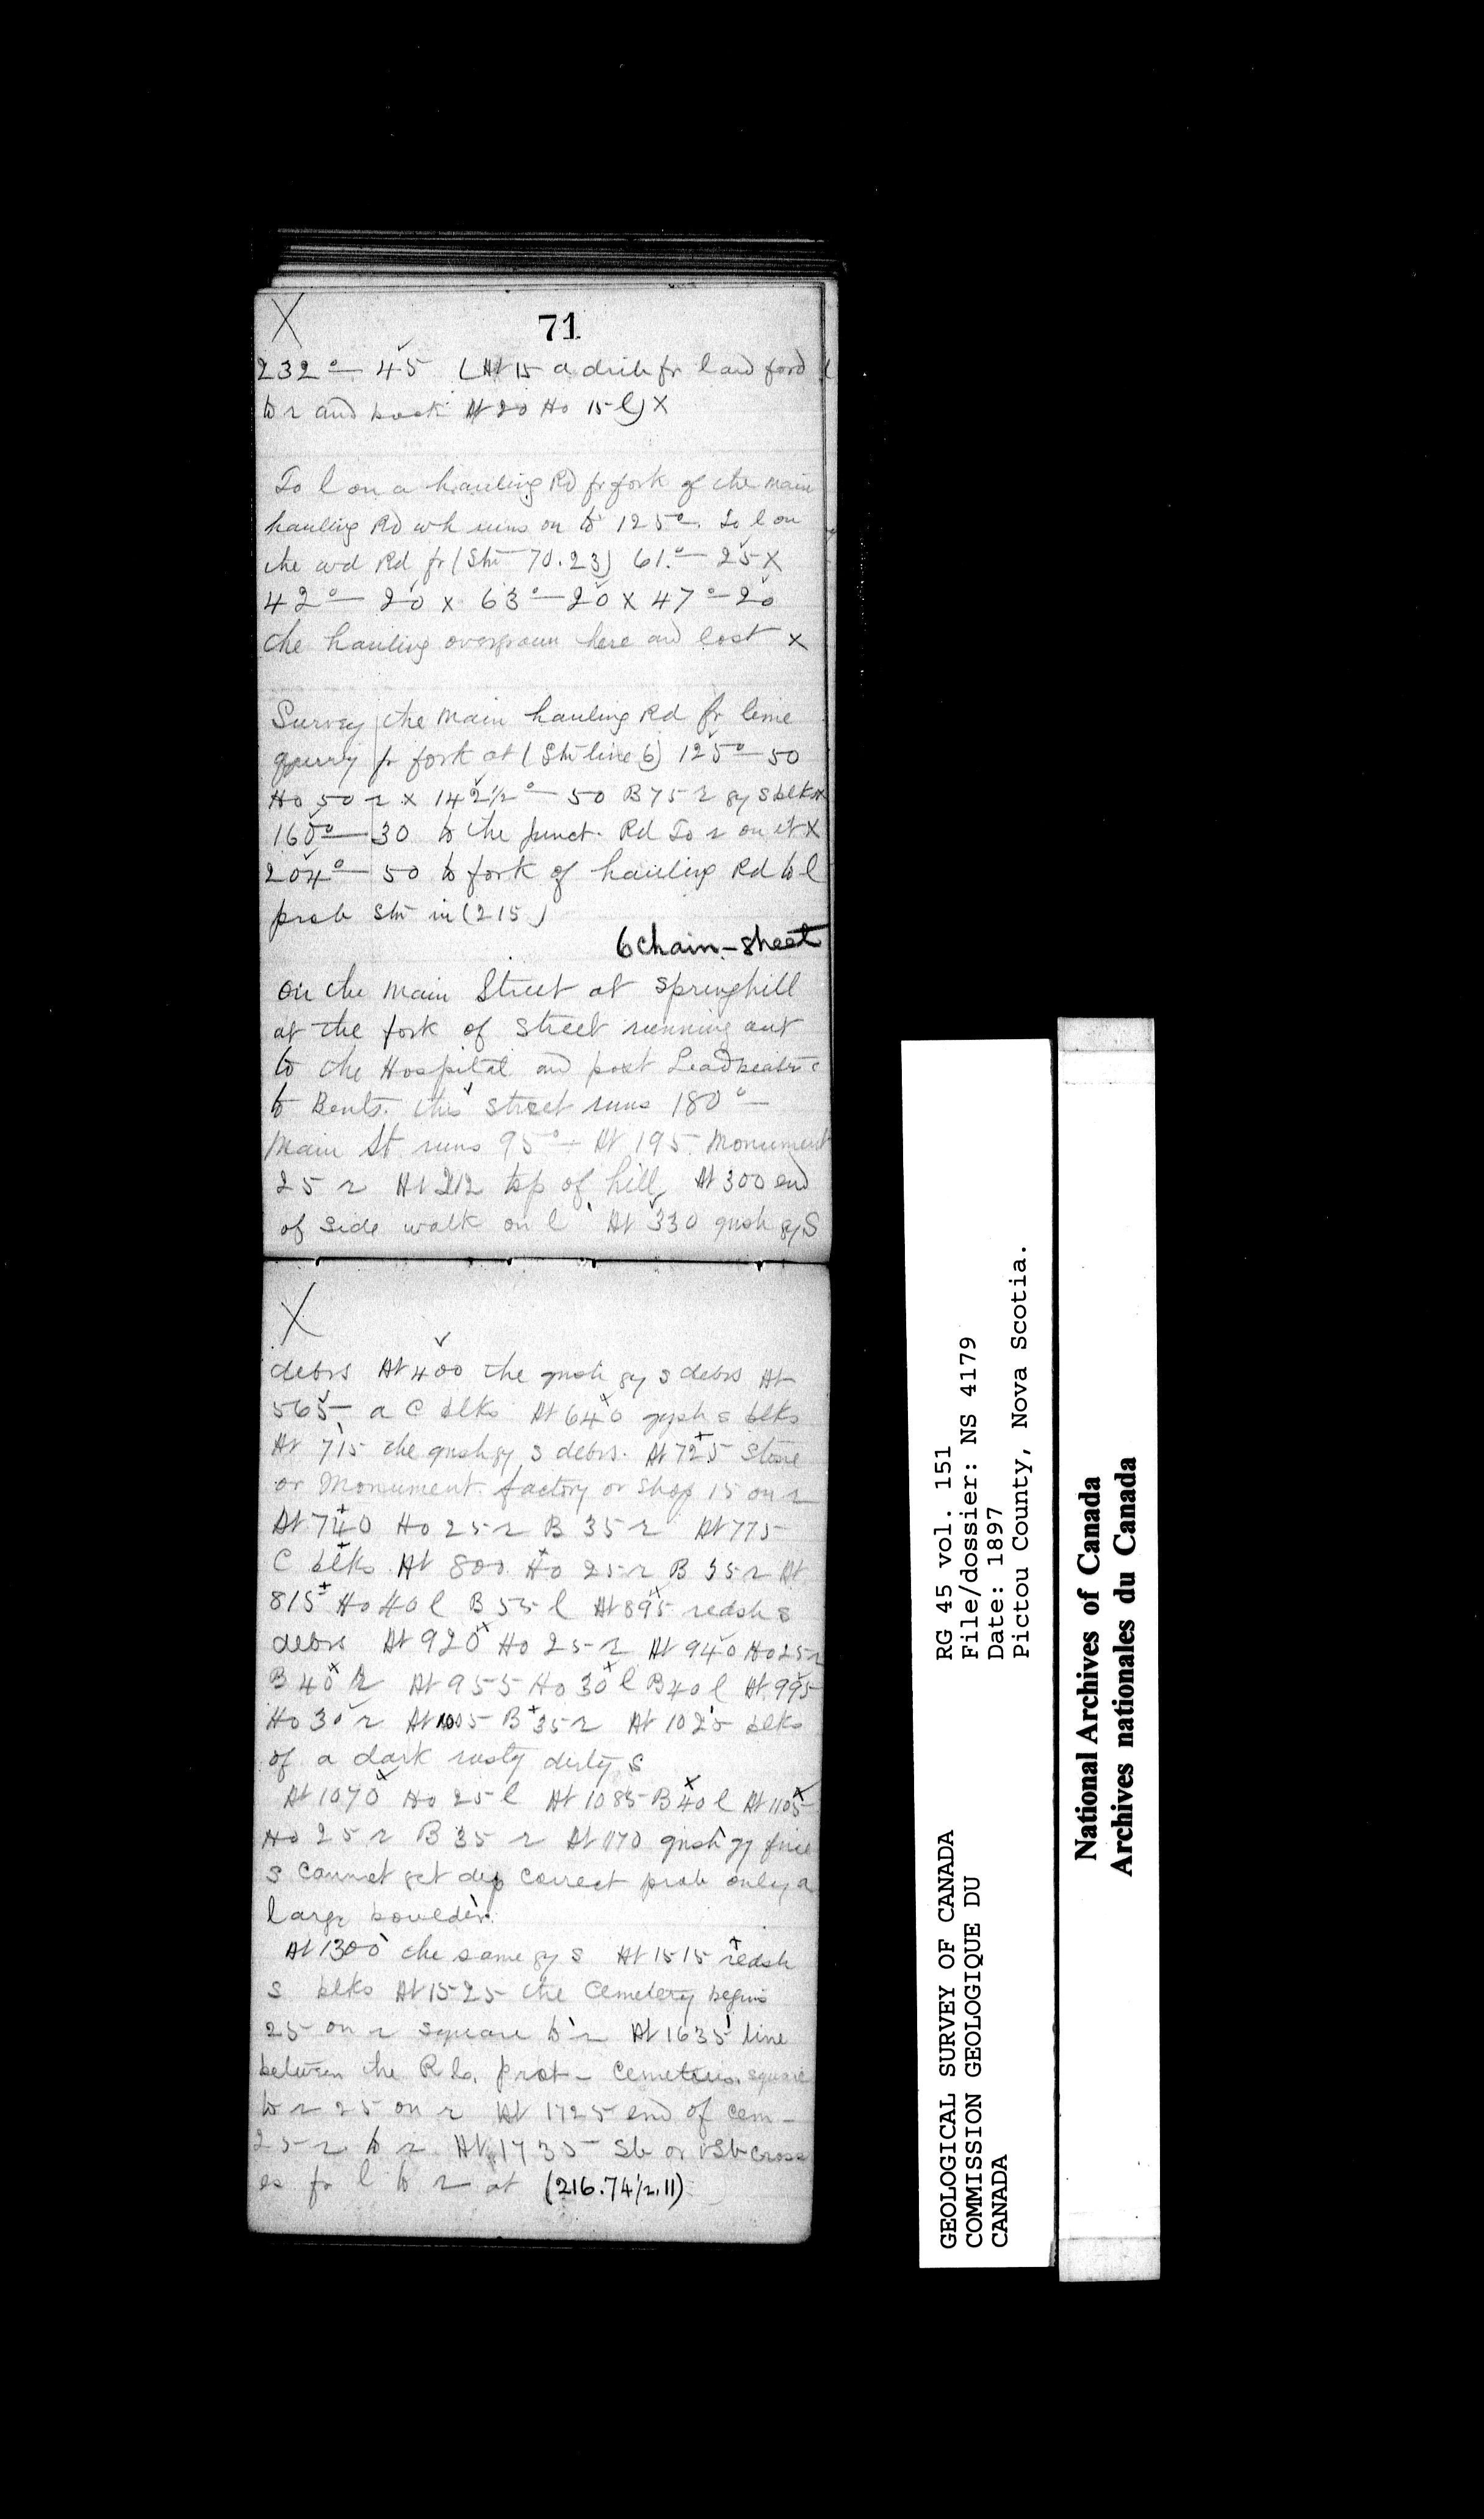 X
71
232° — 45 (At 15 a drik fr l and ford
to r and back At 20 Ho 15 l) X
To l on a hauling Rd fr fork of the main
hauling Rd wh runs on to 125° —. To l on
the wd Rd fr (Stn 70.23) 61.° — 25 X
42° — 20 x 63° — 20 x 47° — 20
the hauling overgrown here and lost x
Survey the main hauling Rd fr lime
fr fork at (Stn line 6) 125° — 50
Ho 50 r x 142 1/2° — 50 B 75 r gy S blks x
160° — 30 to the junct. Rd To r on it X
204° — 50 to fork of hauling Rd to l
prob Stn in (215)
6 chain - sheet
On the Main Street at Springhill
at the fork of Street running out
to the Hospital and past
to Bents. this street runs 180° —
Main St runs 95° — At 195 Monument
25 r At 212 top of hill At 300 end
of side walk on l At 330 gnsh gy S
X
debrs At 400 the gnsh gy S debrs At
565 a C blks At 640 gysh s blks
At 715 the gnsh gy S debrs. At 725 Stone
or Monument factory or shop 15 on r
At 740 Ho 25 r B 35 r At 775
C blks At 800 Ho 25 r B 35 r At
815 Ho 40 l B 55 l At 895 redsh s
debrs At 920 Ho 25 r At 940 Ho 25 r
B 40 r At 955 Ho 30 l B 40 l At 995
Ho 30 r At 1005 B 35 r At 1025 blks
of a dark rusty dirty S
At 1070 Ho 25 l At 1085 B 40 l At 1105
Ho 25 r B 35 r At 1170 gnsh gy fine
S cannot get dip correct prob only a
large boulder.
At 1300 the same gy S At 1515 redsh
S blks At 1525 the Cemetery begins
25 on r square to r At 1635 line
between the R.C. prot - Cemeteries. square
to r 25 on r At 1725 end of cem -
25 r to r At 1735 Sb or vSb cross
es fr l to r at (216.74 1/2.11)
GEOLOGICAL SURVEY OF CANADA
COMMISSION GEOLOGIQUE DU
CANADA
RG 45 vol. 151
File/dossier: NS 4179
Date: 1897
Pictou County, Nova Scotia.
National Archives of Canada
Archives nationales du Canada